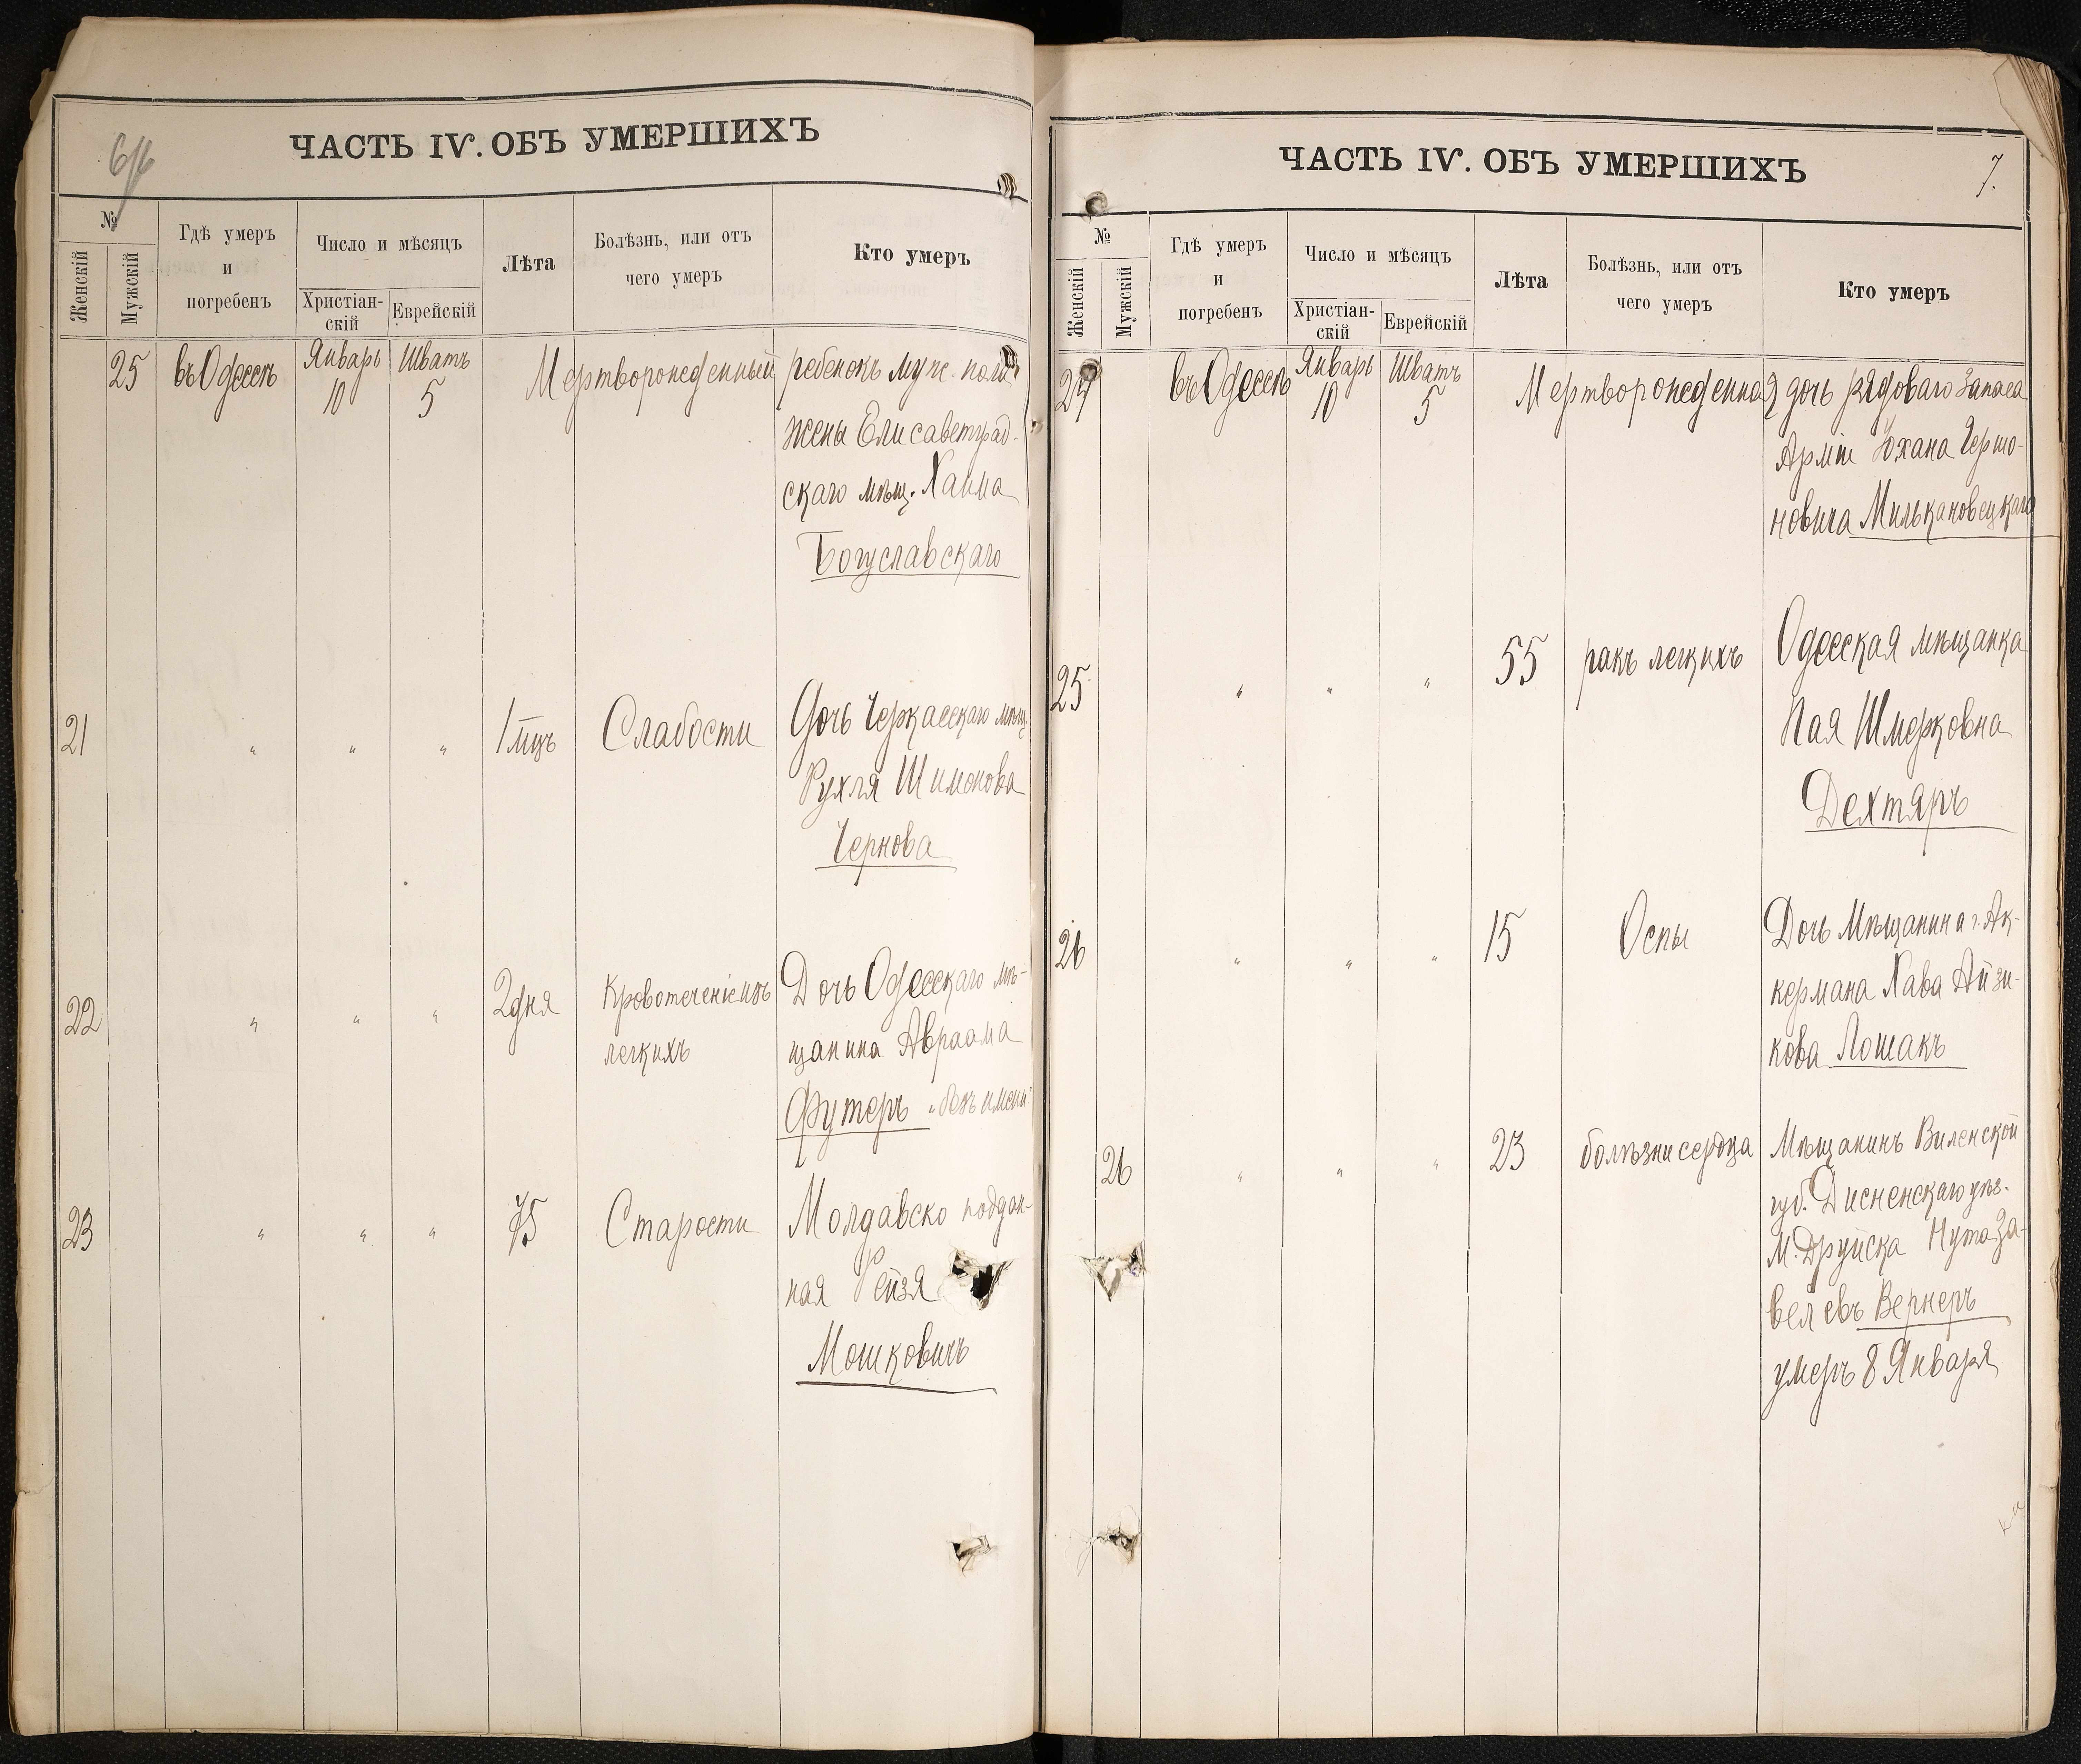 6/6
ЧАСТЬ IV. ОБЪ УМЕРШИХЪ
№
Женскій
Мужскій
Гдѣ умеръ
и
погребенъ
Число и мѣсяцъ
Христіан-
скій
Еврейскій
Лѣта
Болѣзнь, или отъ
чего умеръ
Кто умеръ
25 въ Одессѣ Январь 10 Шватъ 5 Мертворожденный ребенокъ муж. пола
жены Елисаветград-
скаго мѣщ. Хаима
Богуславскаго
21 " " " 1 мцъ Слабости Дочь Черкасскаго мѣщ.
Рухля Шимонова
Чернова
22 " " " 2 дня Кровотеченіе изъ
легкихъ
Дочь Одесскаго мѣ-
щанина Авраама
Футеръ "безъ имени"
23 " " " 75 Старости Молдавско поддан-
ная Рейзя
Мошковичъ
ЧАСТЬ IV. ОБЪ УМЕРШИХЪ
7.
№
Женскій
Мужскій
Гдѣ умеръ
и
погребенъ
Число и мѣсяцъ
Христіан-
скій
Еврейскій
Лѣта
Болѣзнь, или отъ
чего умеръ
Кто умеръ
24 въ Одессѣ Январь 10 Шватъ 5 Мертворожденная дочь рядоваго запаса
Арміи Юхана Гершо-
новича Милькановецкаго
25 " " " 55 ракъ легкихъ Одесская мѣщанка
Пая Шмерковна
Дехтяръ
26 " " " 15 Оспы Дочь Мѣщанина г. Ак-
кермана Хава Айзи-
кова Лошакъ
26 " " " 23 болѣзни сердца Мѣщанинъ Виленской
губ. Дисненскаго уѣз.
М. Друйска Нута За-
велевъ Вернеръ
умеръ 8 Января